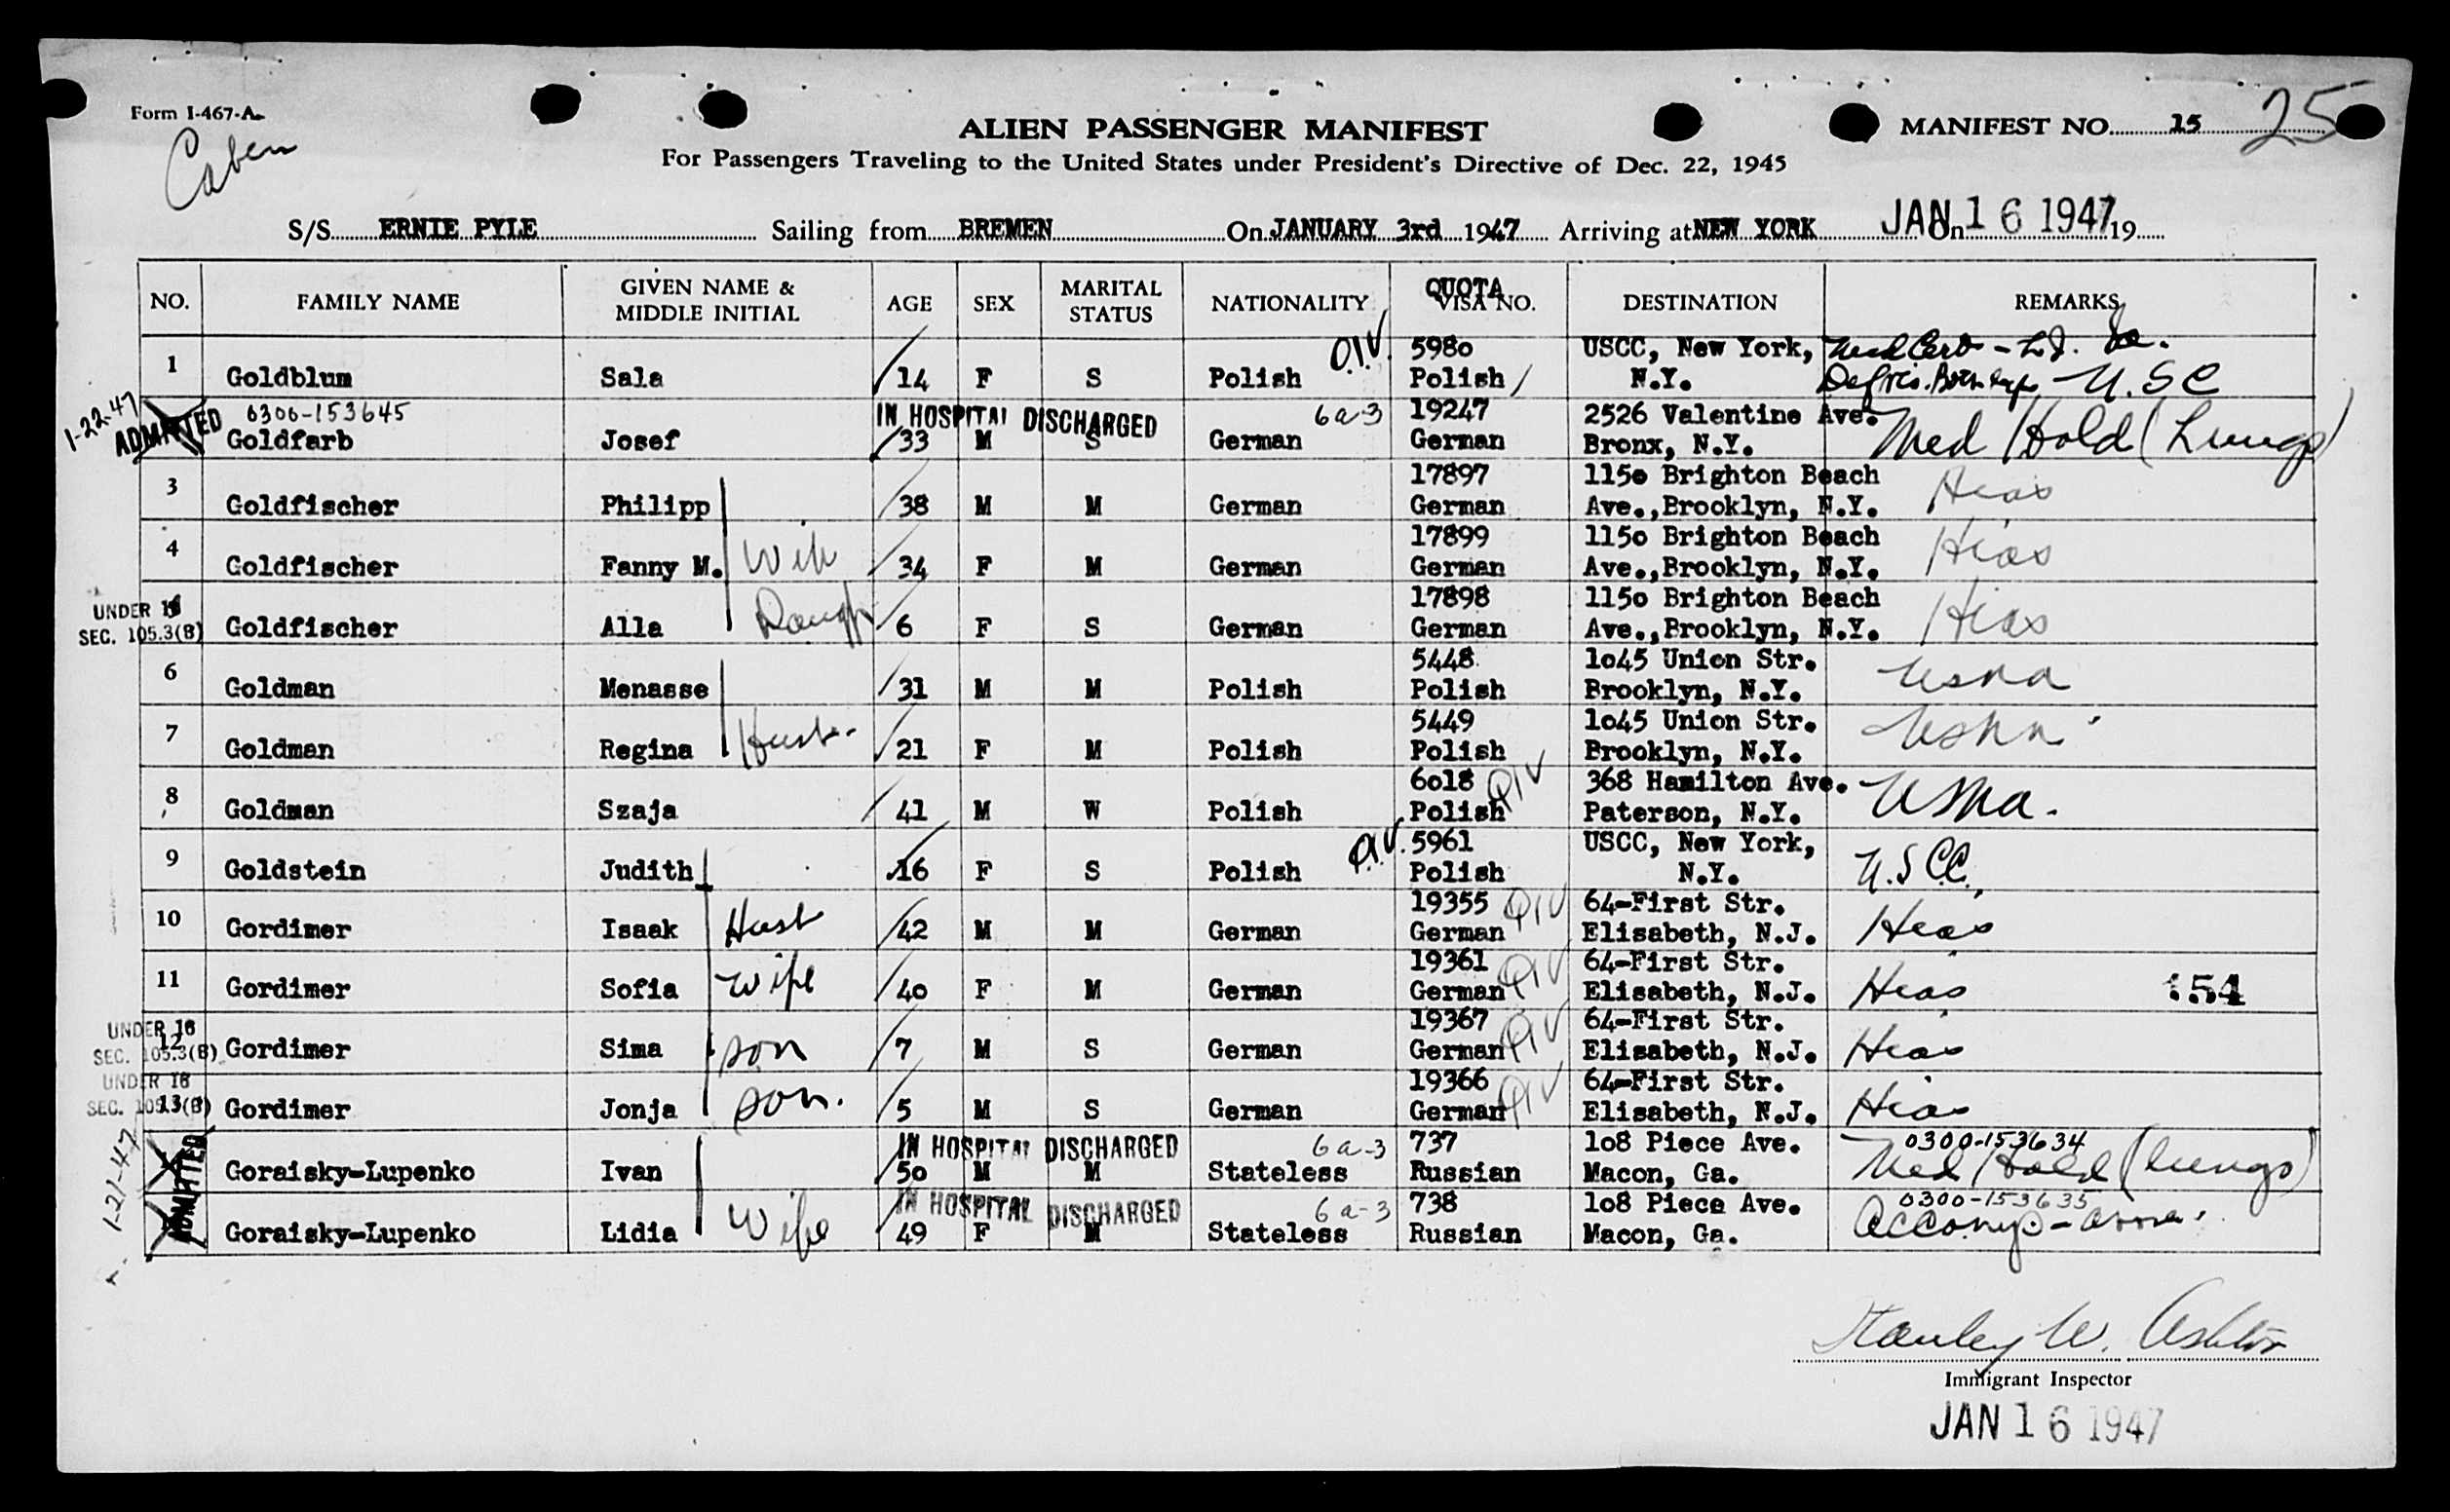 Form I-467-A
Caben
ALIEN PASSENGER MANIFEST
MANIFEST NO. 15 25
For Passengers Traveling to the United States under President's Directive of Dec. 22, 1945
S/S ERNIE PYLE Sailing from BREMEN On JANUARY 3rd 1947 Arriving at NEW YORK On JAN 16 1947 19
NO. FAMILY NAME GIVEN NAME & MIDDLE INITIAL AGE SEX MARITAL STATUS NATIONALITY QUOTA VISA NO. DESTINATION REMARKS
1 Goldblum Sala 14 F S Polish QIV. 5980 Polish USCC, New York, N.Y. Med Cert U.S.C
1-22-47 ADMITTED 0300-153645 Goldfarb Josef IN HOSPITAL DISCHARGED 33 M S German 6a-3 19247 German 2526 Valentine Ave. Bronx, N.Y. Med Hold (Lungs)
3 Goldfischer Philipp 38 M M German 17897 German 1150 Brighton Beach Ave.,Brooklyn, N.Y. Hias
4 Goldfischer Fanny M. Wife 34 F M German 17899 German 1150 Brighton Beach Ave.,Brooklyn, N.Y. Hias
UNDER 16 SEC. 105.3(B) Goldfischer Alla Daugh 6 F S German 17898 German 1150 Brighton Beach Ave.,Brooklyn, N.Y. Hias
6 Goldman Menasse 31 M M Polish 5448 Polish 1045 Union Str. Brooklyn, N.Y. USNA
7 Goldman Regina Husb. 21 F M Polish 5449 Polish 1045 Union Str. Brooklyn, N.Y. USNA
8 Goldman Szaja 41 M W Polish 6018 Polish QIV 368 Hamilton Ave. Paterson, N.Y. USNA.
9 Goldstein Judith 16 F S Polish QIV. 5961 Polish USCC, New York, N.Y. U.S.C.C.
10 Gordimer Isaak Husb 42 M M German 19355 German QIV 64-First Str. Elisabeth, N.J. Hias
11 Gordimer Sofia Wife 40 F M German 19361 German QIV 64-First Str. Elisabeth, N.J. Hias 154
UNDER 16 SEC. 105.3(B) 12 Gordimer Sima son 7 M S German 19367 German QIV 64-First Str. Elisabeth, N.J. Hias
UNDER 16 SEC. 105.3(B) 13 Gordimer Jonja son. 5 M S German 19366 German QIV 64-First Str. Elisabeth, N.J. Hias
1-21-47 ADMITTED Goraisky-Lupenko Ivan IN HOSPITAL DISCHARGED 50 M M Stateless 6a-3 737 Russian 108 Piece Ave. Macon, Ga. 0300-153634 Med Hold (lungs)
ADMITTED Goraisky-Lupenko Lidia Wife IN HOSPITAL DISCHARGED 49 F M Stateless 6a-3 738 Russian 108 Piece Ave. Macon, Ga. 0300-153635 Accomp-
Stanley W. Ashton
Immigrant Inspector
JAN 16 1947